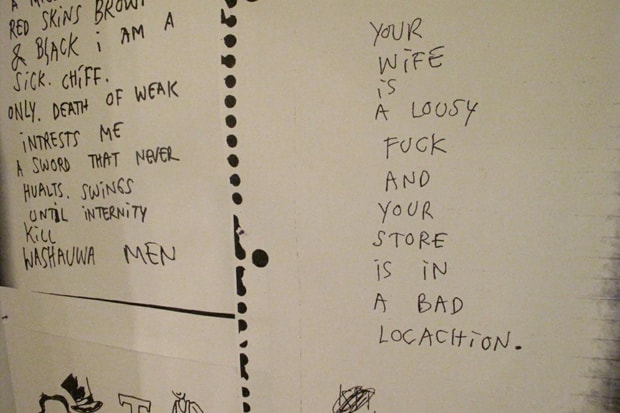 RED SKINS BROWN
& BLACK i AM A
SiCK. CHiFF.
ONLY. DEATH OF WEAK
iNTRESTS ME
A SWORD THAT NEVER
HUALTS. SWiNGS
UNTiL iNTERNiTY
KiLL
WASHAUWA MEN
YOUR
WiFE
iS
A LOUSY
FUCK
AND
YOUR
STORE
iS iN
A BAD
LOCACHiON.